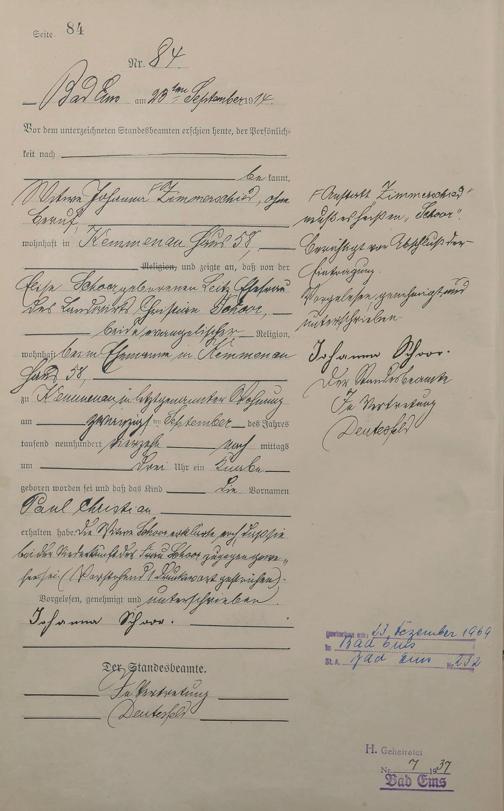 Seite 84
Nr. 84
Bad Ems am 23ten September 1914.
Vor dem unterzeichneten Standesbeamten erschien heute, der Persönlich-
keit nach
bekannt,
Witwe Johanna Zimmerschied, ohne
Beruf,
wohnhaft in Kemmenau Haus 58,
Religion, und zeigte an, daß von der
Elise Schoor geborenen Leitz Ehefrau
des Landwirts Christian Schoor,
beide evangelischer Religion,
wohnhaft bei ihrem Ehemanne in Kemmenau
Haus 58,
zu Kemmenau, in letztgenannter Wohnung
am zwanzigsten September des Jahres
tausend neunhundert vierzehn nach mittags
um drei Uhr ein Knabe
geboren worden sei und daß das Kind die Vornamen
Paul Christian
erhalten habe. Die Witwe Schoor erklärte noch, daß sie
bei der Niederkunft der Frau Schoor zugegen gewe-
sen sei (Vorstehend 1 Druckwort gestrichen).
Vorgelesen, genehmigt und unterschrieben.
Johanna Schoor.
Der Standesbeamte.
In Vertretung
Anstatt "Zimmerschied"
muß es heißen "Schoor".
Berichtigt vor Abschluß der
Eintragung.
Vorgelesen, genehmigt und
unterschrieben
Johanna Schoor.
Der Standesbeamte
In Vertretung
23. Dezember 1969
in Bad Ems
St. A. Bad Ems Nr. 232
H. Geheiratet
Nr. 7 1937
Bad Ems